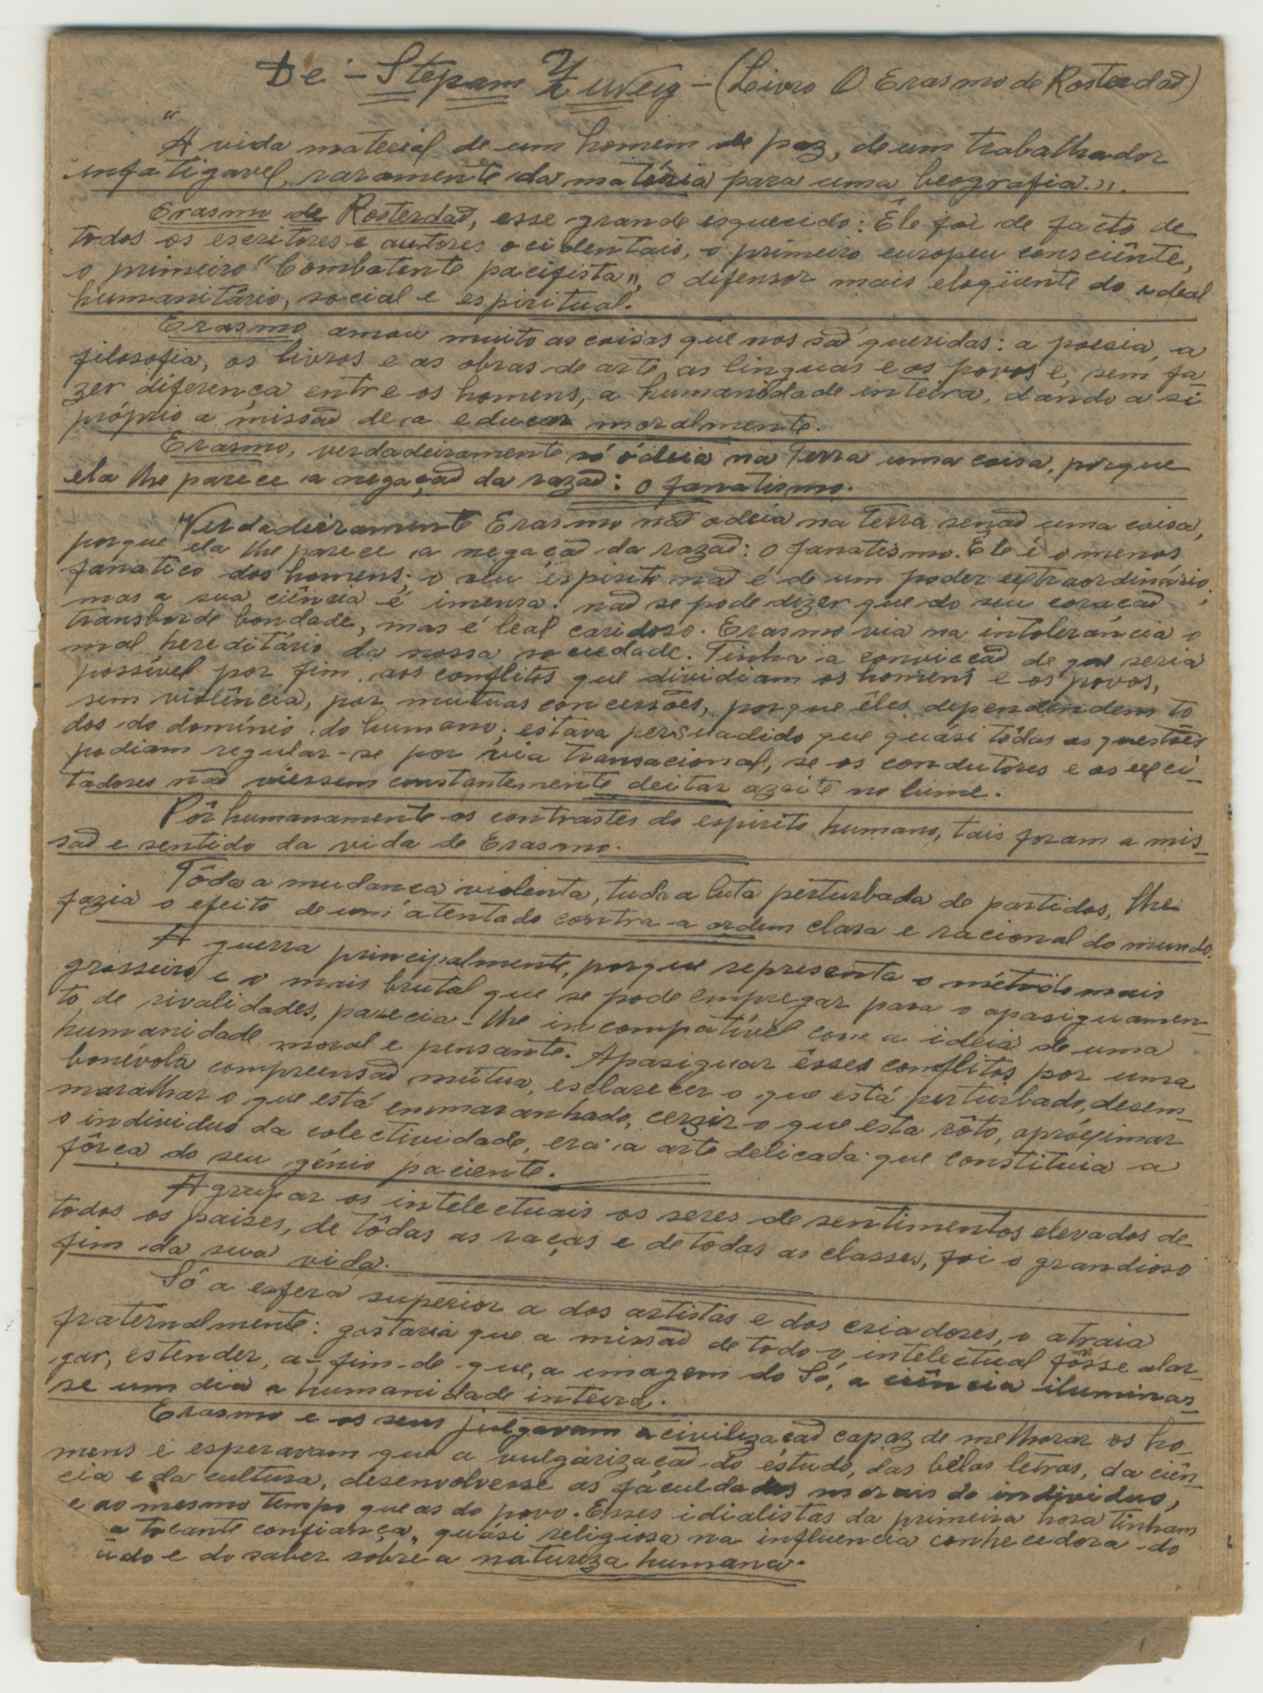 De - Stepam Zuweig - (Livro O Erasmo de Rosterdad)
"A vida material de um homem de paz, de um trabalhador
infatigavel, raramente da matéria para uma beografia.".
Erasmo de Rosterdad, esse grande esquecido: Êle foi de facto de
todos os escritores e autores ocidentais, o primeiro europeu consciênte,
o primeiro "Combatente pacifista", o difensor mais eloqüente do ideal
humanitário, social e espiritual.
Erasmo amou muito as coisas que nos sad queridas: a poesia, a
filosofia, os livros e as obras de arte, as linguas e os povos e, sem fa
zer diferença entre os homens, a humanidade inteira, dando a si
próprio a missad de a educar moralmente.
Erasmo, verdadeiramente só ódeia na Terra uma coisa, porque
ela lhe parece a negaçad da razad: o fanatismo.
"Verdadeiramente Erasmo nad odeia na Terra senad uma coisa,
porque ela lhe parece a negaçad da razad: o fanatismo. Ele é o menos
fanatico dos homens; o seu espirito nad é de um poder extraordinário,
mas a sua ciência é imensa; nad se pode dizer que do seu coraçad
transborde bondade, mas é leal caridoso. Erasmo via na intolerância o
mal hereditário da nossa sociedade. Tinha a convicçad de que seria
possivel por fim aos conflitos que dividiam os homens e os povos,
sem violência, por mutuas concessões, porque êles dependendem to
dos do domínio do humano; estava persuadido que quási tôdas as questões
podiam regular-se por via transacional, se os condutores e os exci-
tadores nad viessem constantemente deitar azeite no lume.
Pôr humanamente os contrastes do espirito humano, tais foram a mis-
sad e sentido da vida de Erasmo.
Tôda a mudança violenta, tuda a luta perturbada de partidos, lhe
fazia o efeito de um atentado contra a ordem clara e racional do mundo.
A guerra principalmente, porque representa o método mais
grosseiro e o mais brutal que se pode empregar para o apasiguamen-
to de rivalidades, parecia-lhe incompativel com a ideia de uma
humanidade moral e pensante. Apasiguar êsses conflitos por uma
bonévola compreensad mútua, esclarecer o que está perturbado, desem-
maralhar o que está enmaranhado, cerzir o que esta rôto, apróximar
o individuo da colectividade, era a arte delicada que constituia a
fôrça do seu génio paciente.
Agrupar os intelectuais os seres de sentimentos elevados de
todos os paises, de tôdas as raças e de todas as classes, foi o grandioso
fim da sua vida.
Só a esfera superior a dos artistas e dos criadores, o atraia
fraternalmente: gostaria que a missad de todo o intelectual fôsse alar-
gar, estender, a-fim-de que, a imagem do Só, a ciência iluminas-
se um dia a humanidade inteira.
Erasmo e os seus julgavam a civilizaçad capaz de melhorar os ho-
mens e esperavam que a vulgarizaçad do estudo, das bélas letras, da ciên-
cia e da cultura, desenvolvesse as fáculdades morais do individuo,
e ao mesmo tempo que as do povo. Esses idialistas da primeira hora tinham
a tocante confiança, quási religiosa na influencia conhecedora do
údo e do saber sobre a natureza humana.